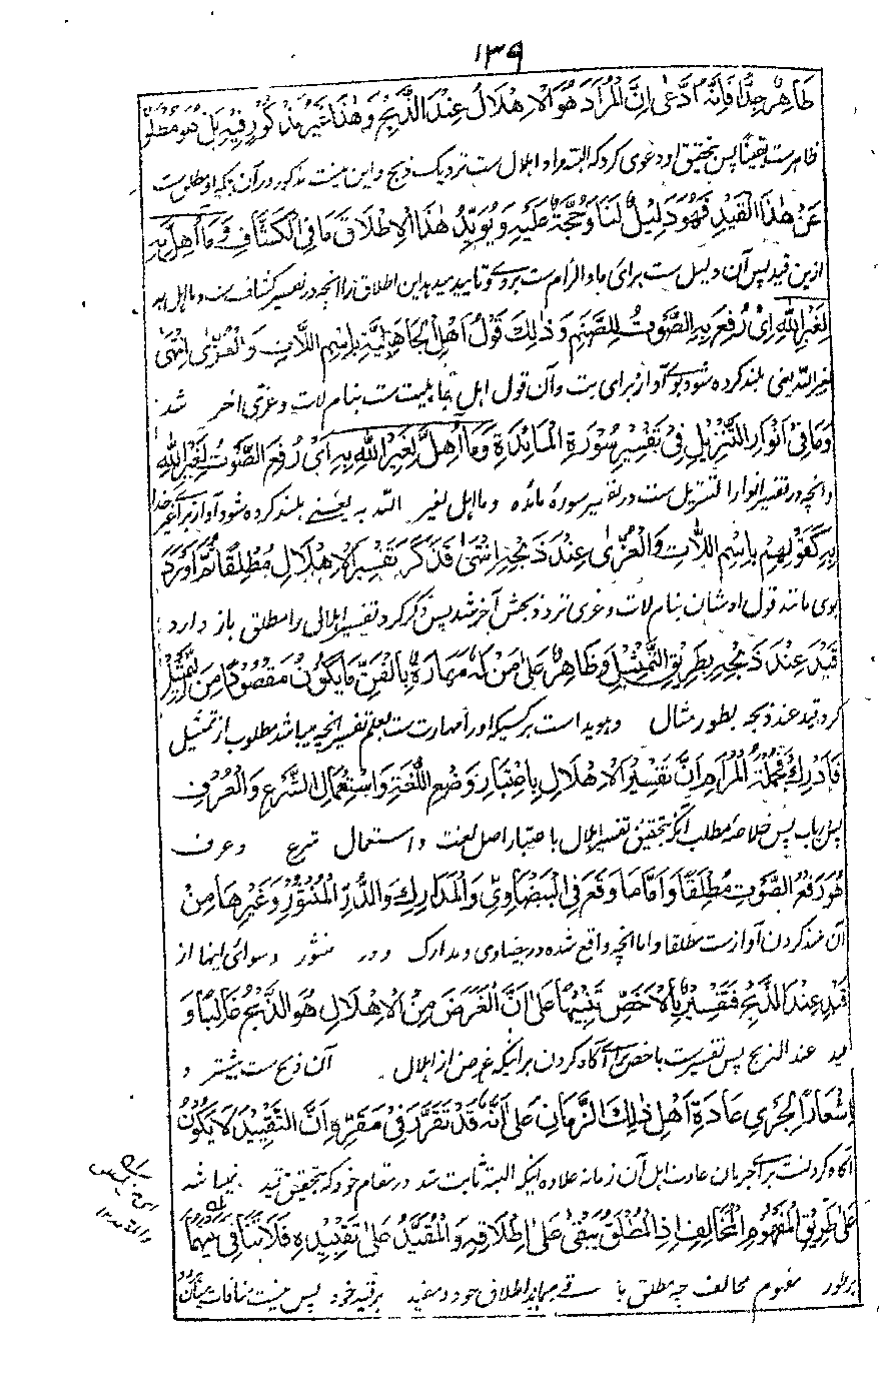 ۱۳۹
ظَاهِرٌ جِدًّا فَاِنَّهُ ادَّعٰی اِنَّ الْمُرَادَ هُوَ الْاِهْلَالُ عِنْدَ الذَّبْحِ وَهٰذَا غَیْرُ مَذْکُوْرٍ فِیْهِ بَلْ هُوَ مُطْلَقٌ
ظاهرست یقیناً پس بتحقیق او دعوی کرد که البته مراد اهلال ست نزدیک ذبح و این نیست مذکور در آن بلکه او مطلق ست
عَنْ هٰذَا الْقَیْدِ فَهُوَ دَلِیْلٌ لَنَا وَحُجَّةٌ عَلَیْهِ وَیُؤَیِّدُ هٰذَا الْاِطْلَاقَ مَا فِی الْکَشَّافِ وَمَا اُهِلَّ بِهٖ
ازین قید پس آن دلیل ست برای ما و الزام ست بروے و تایید میدهد این اطلاق را آنچه در تفسیر کشاف ست وما اهل به
لِغَیْرِ اللّٰهِ اَیْ رُفِعَ بِهِ الصَّوْتُ لِلصَّنَمِ وَذٰلِکَ قَوْلُ اَهْلِ الْجَاهِلِیَّةِ بِاسْمِ اللَّاتِ وَالْعُزّٰی اِنْتَهٰی
لغیر الله یعنی بلند کرده شود بوے آواز برای بت و آن قول اهل جاهلیت ست بنام لات و عزی آخر شد
وَمَا فِیْ اَنْوَارِ التَّنْزِیْلِ فِیْ تَفْسِیْرِ سُوْرَةِ الْمَائِدَةِ وَمَا اُهِلَّ لِغَیْرِ اللّٰهِ بِهٖ اَیْ رُفِعَ الصَّوْتُ لِغَیْرِ اللّٰهِ
و آنچه در تفسیر انوار التنزیل ست در تفسیر سورهٔ مائده وما اهل لغیر الله به یعنے بلند کرده شود آواز برائے غیر خدا
بِهٖ کَقَوْلِهِمْ بِاسْمِ اللَّاتِ وَالْعُزّٰی عِنْدَ ذَبْحِهٖ اِنْتَهٰی فَذَکَرَ تَفْسِیْرَ الْاِهْلَالِ مُطْلَقًا ثُمَّ اَوْرَدَ
بوی مانند قول اوشان بنام لات و عزی نزد ذبحش آخر شد پس ذکر کرد تفسیر اهلال را مطلق باز وارد
قَیْدَ عِنْدَ ذَبْحِهٖ بِطَرِیْقِ التَّمْثِیْلِ وَظَاهِرٌ عَلٰی مَنْ لَهٗ مَهَارَةٌ بِالْفَنِّ مَا یَکُوْنُ مَقْصُوْدًا مِنَ التَّمْثِیْلِ
کرد قید عند ذبحه بطور مثال و هویدا است بر کسیکه او را مهارت ست بعلم تفسیر آنچه میباشد مطلوب از تمثیل
فَادْرِکْ فَجُمْلَةُ الْمَرَامِ اَنَّ تَفْسِیْرَ الْاِهْلَالِ بِاعْتِبَارِ وَضْعِ اللُّغَةِ وَاسْتِعْمَالِ الشَّرْعِ وَالْعُرْفِ
پس دریاب پس خلاصهٔ مطلب آنکه بتحقیق تفسیر اهلال باعتبار اصل لغت و استعمال شرع و عرف
هُوَ رَفْعُ الصَّوْتِ مُطْلَقًا وَاَمَّا مَا وَقَعَ فِی الْبَیْضَاوِیِّ وَالْمَدَارِکِ وَالدُّرِّ الْمَنْثُوْرِ وَغَیْرِهَا مِنْ
آن بلند کردن آواز ست مطلقا و اما آنچه واقع شده در بیضاوی و مدارک و در منثور و سوائے اینها از
قَیْدِ عِنْدَ الذَّبْحِ فَتَفْسِیْرٌ بِالْاَخَصِّ تَنْبِیْهًا عَلٰی اَنَّ الْغَرَضَ مِنَ الْاِهْلَالِ هُوَ الذَّبْحُ غَالِبًا وَ
قید عند الذبح پس تفسیر ست باخص برائے آگاه کردن بر اینکه غرض از اهلال آن ذبح ست بیشتر و
اِشْعَارًا لِجَرْیِ عَادَةِ اَهْلِ ذٰلِکَ الزَّمَانِ عَلٰی اَنَّهٗ قَدْ تَقَرَّرَ فِیْ مَقَرِّهٖ اَنَّ التَّقْیِیْدَ لَا یَکُوْنُ
آگاه کردنست برائے جریان عادت اهل آن زمانه علاوه اینکه البته ثابت شد در مقام خود که بتحقیق قید نمیباشد
عَلٰی طَرِیْقِ الْمَفْهُوْمِ الْمُخَالِفِ اِذِ الْمُطْلَقُ یَبْقٰی عَلٰی اِطْلَاقِهٖ وَالْمُقَیَّدُ عَلٰی تَقْیِیْدِهٖ فَلَا تَنَافِیَ بَیْنَهُمَا
بر طور مفهوم مخالف چه مطلق باقے میماند بر اطلاق خود و مقید بر قید خود پس نیست منافات میان